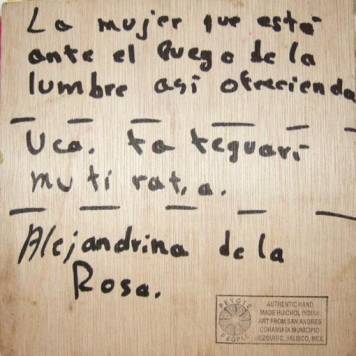 La mujer que está
ante el fuego de la
lumbre asi ofreciendo
Uca. ta teguari
mu ti rat,a.
Alejandrina de la
Rosa.
PEYOTE
PEOPLE
AUTHENTIC HAND
MADE HUICHOL INDIAN
ART FROM SAN ANDRES
COHAMIATA MUNICIPIO
MEZQUITIC, JALISCO, MEX.